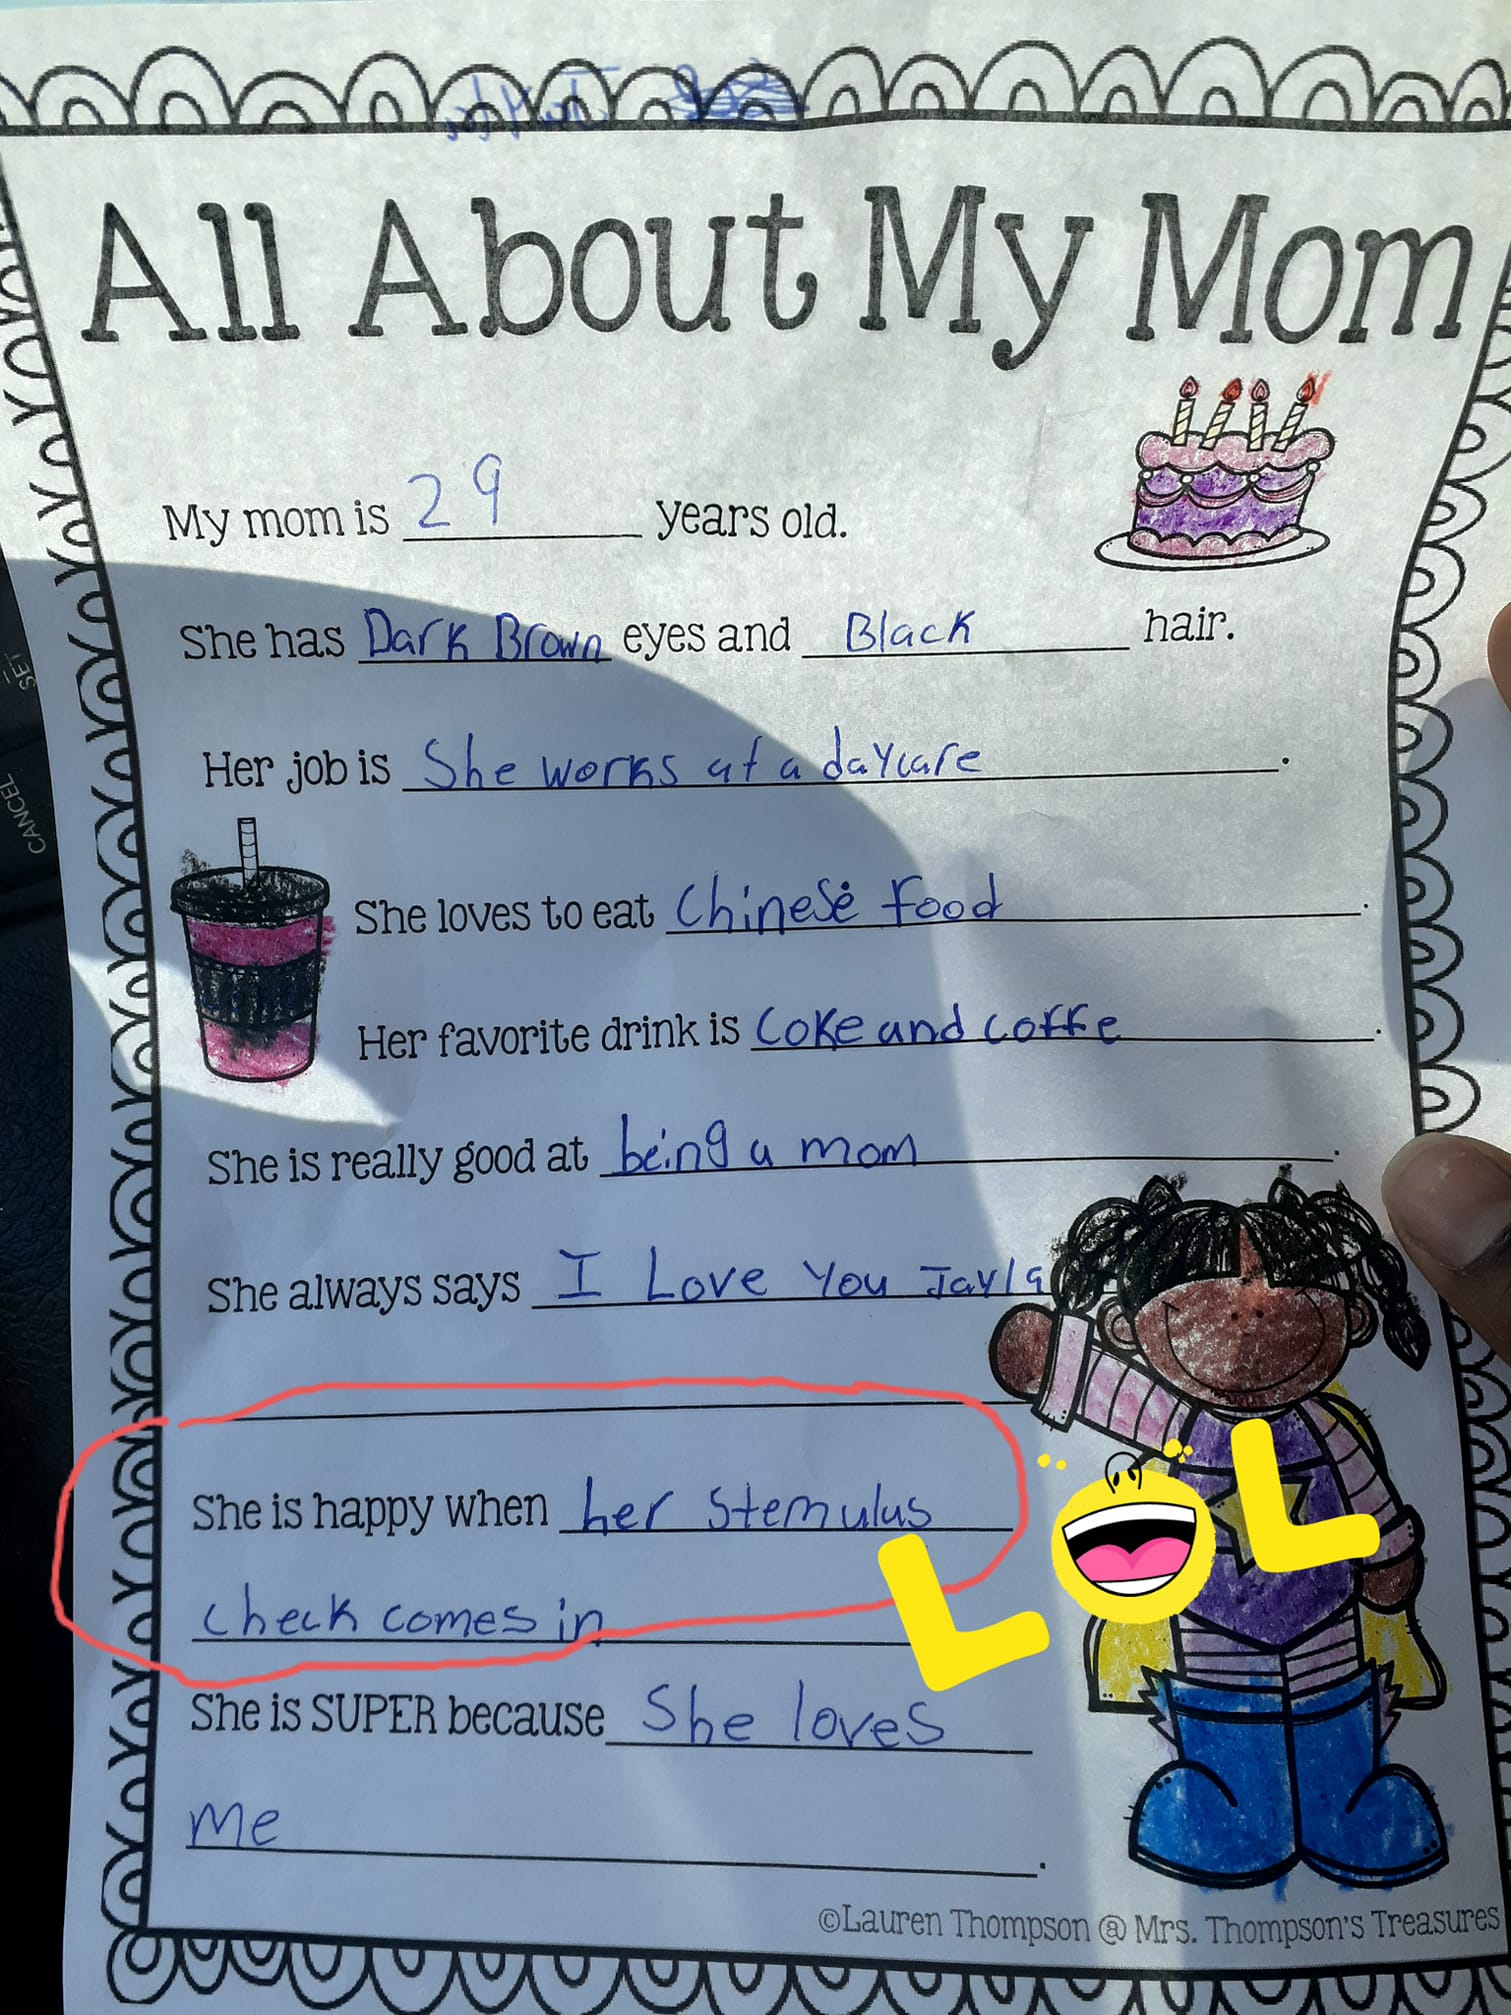 All About My Mom
My mom is 29 years old.
She has Dark Brown eyes and Black hair.
Her job is She works at a daycare.
She loves to eat Chinese Food.
Her favorite drink is Coke and coffe.
She is really good at being a mom.
She always says I Love You Jayla
She is happy when her stemulus
check comes in
LOL
She is SUPER because She loves
me.
©Lauren Thompson @ Mrs. Thompson's Treasures
SET
CANCEL